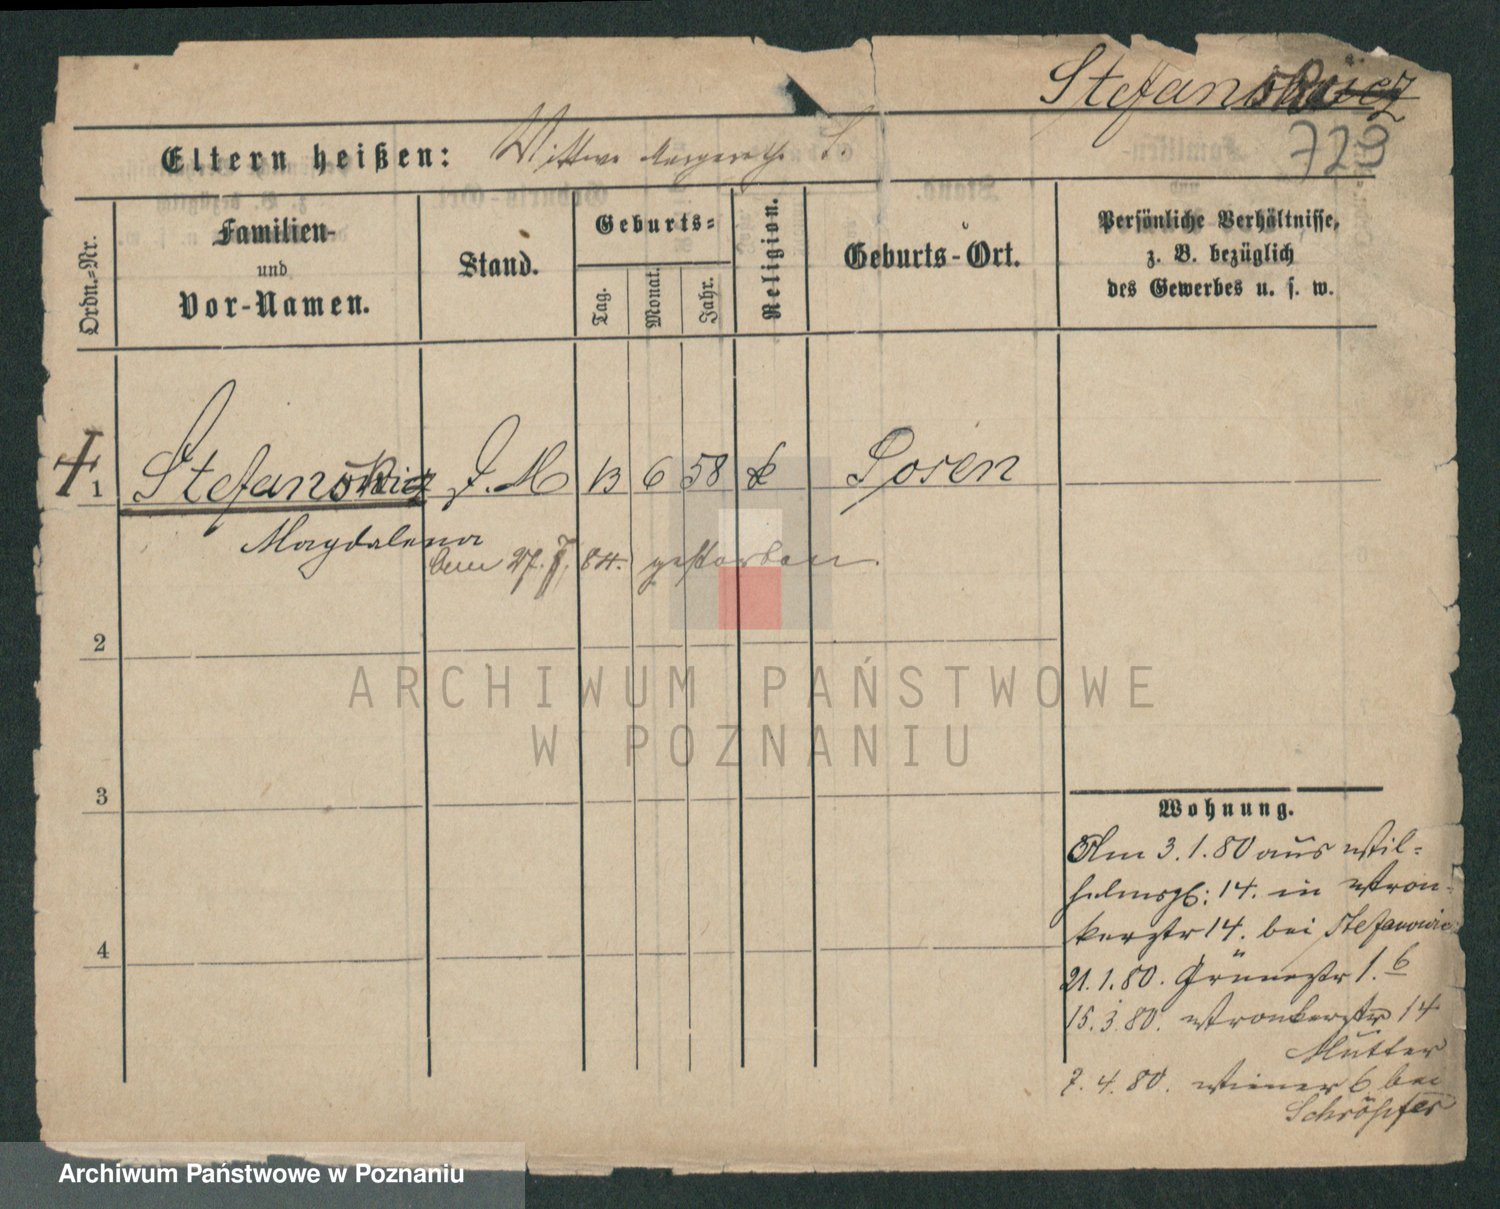 Stefanowicz
729
Eltern heißen: Wittwe Margarethe S.
Ordn.-Nr.
Familien-
und
Vor-Namen.
Stand.
Geburts-
Tag.
Monat.
Jahr.
Religion.
Geburts-Ort.
Persönliche Verhältnisse,
z. B. bezüglich
des Gewerbes u. s. w.
1 Stefanowicz D. M 13 6 58 k Posen
Magdalena
den 27. 84. gestorben.
2
3
4
Wohnung.
Am 3.1.80 aus Wil-
helmspl: 14. in Wron-
kerstr 14. bei Stefanowic
21.1.80. Grünestr 1. 6
15.3.80. Wronkerstr 14
Mutter
7.4.80. Wiener 6 bei
Schröpfer
ARCHIWUM PAŃSTWOWE
W POZNANIU
Archiwum Państwowe w Poznaniu